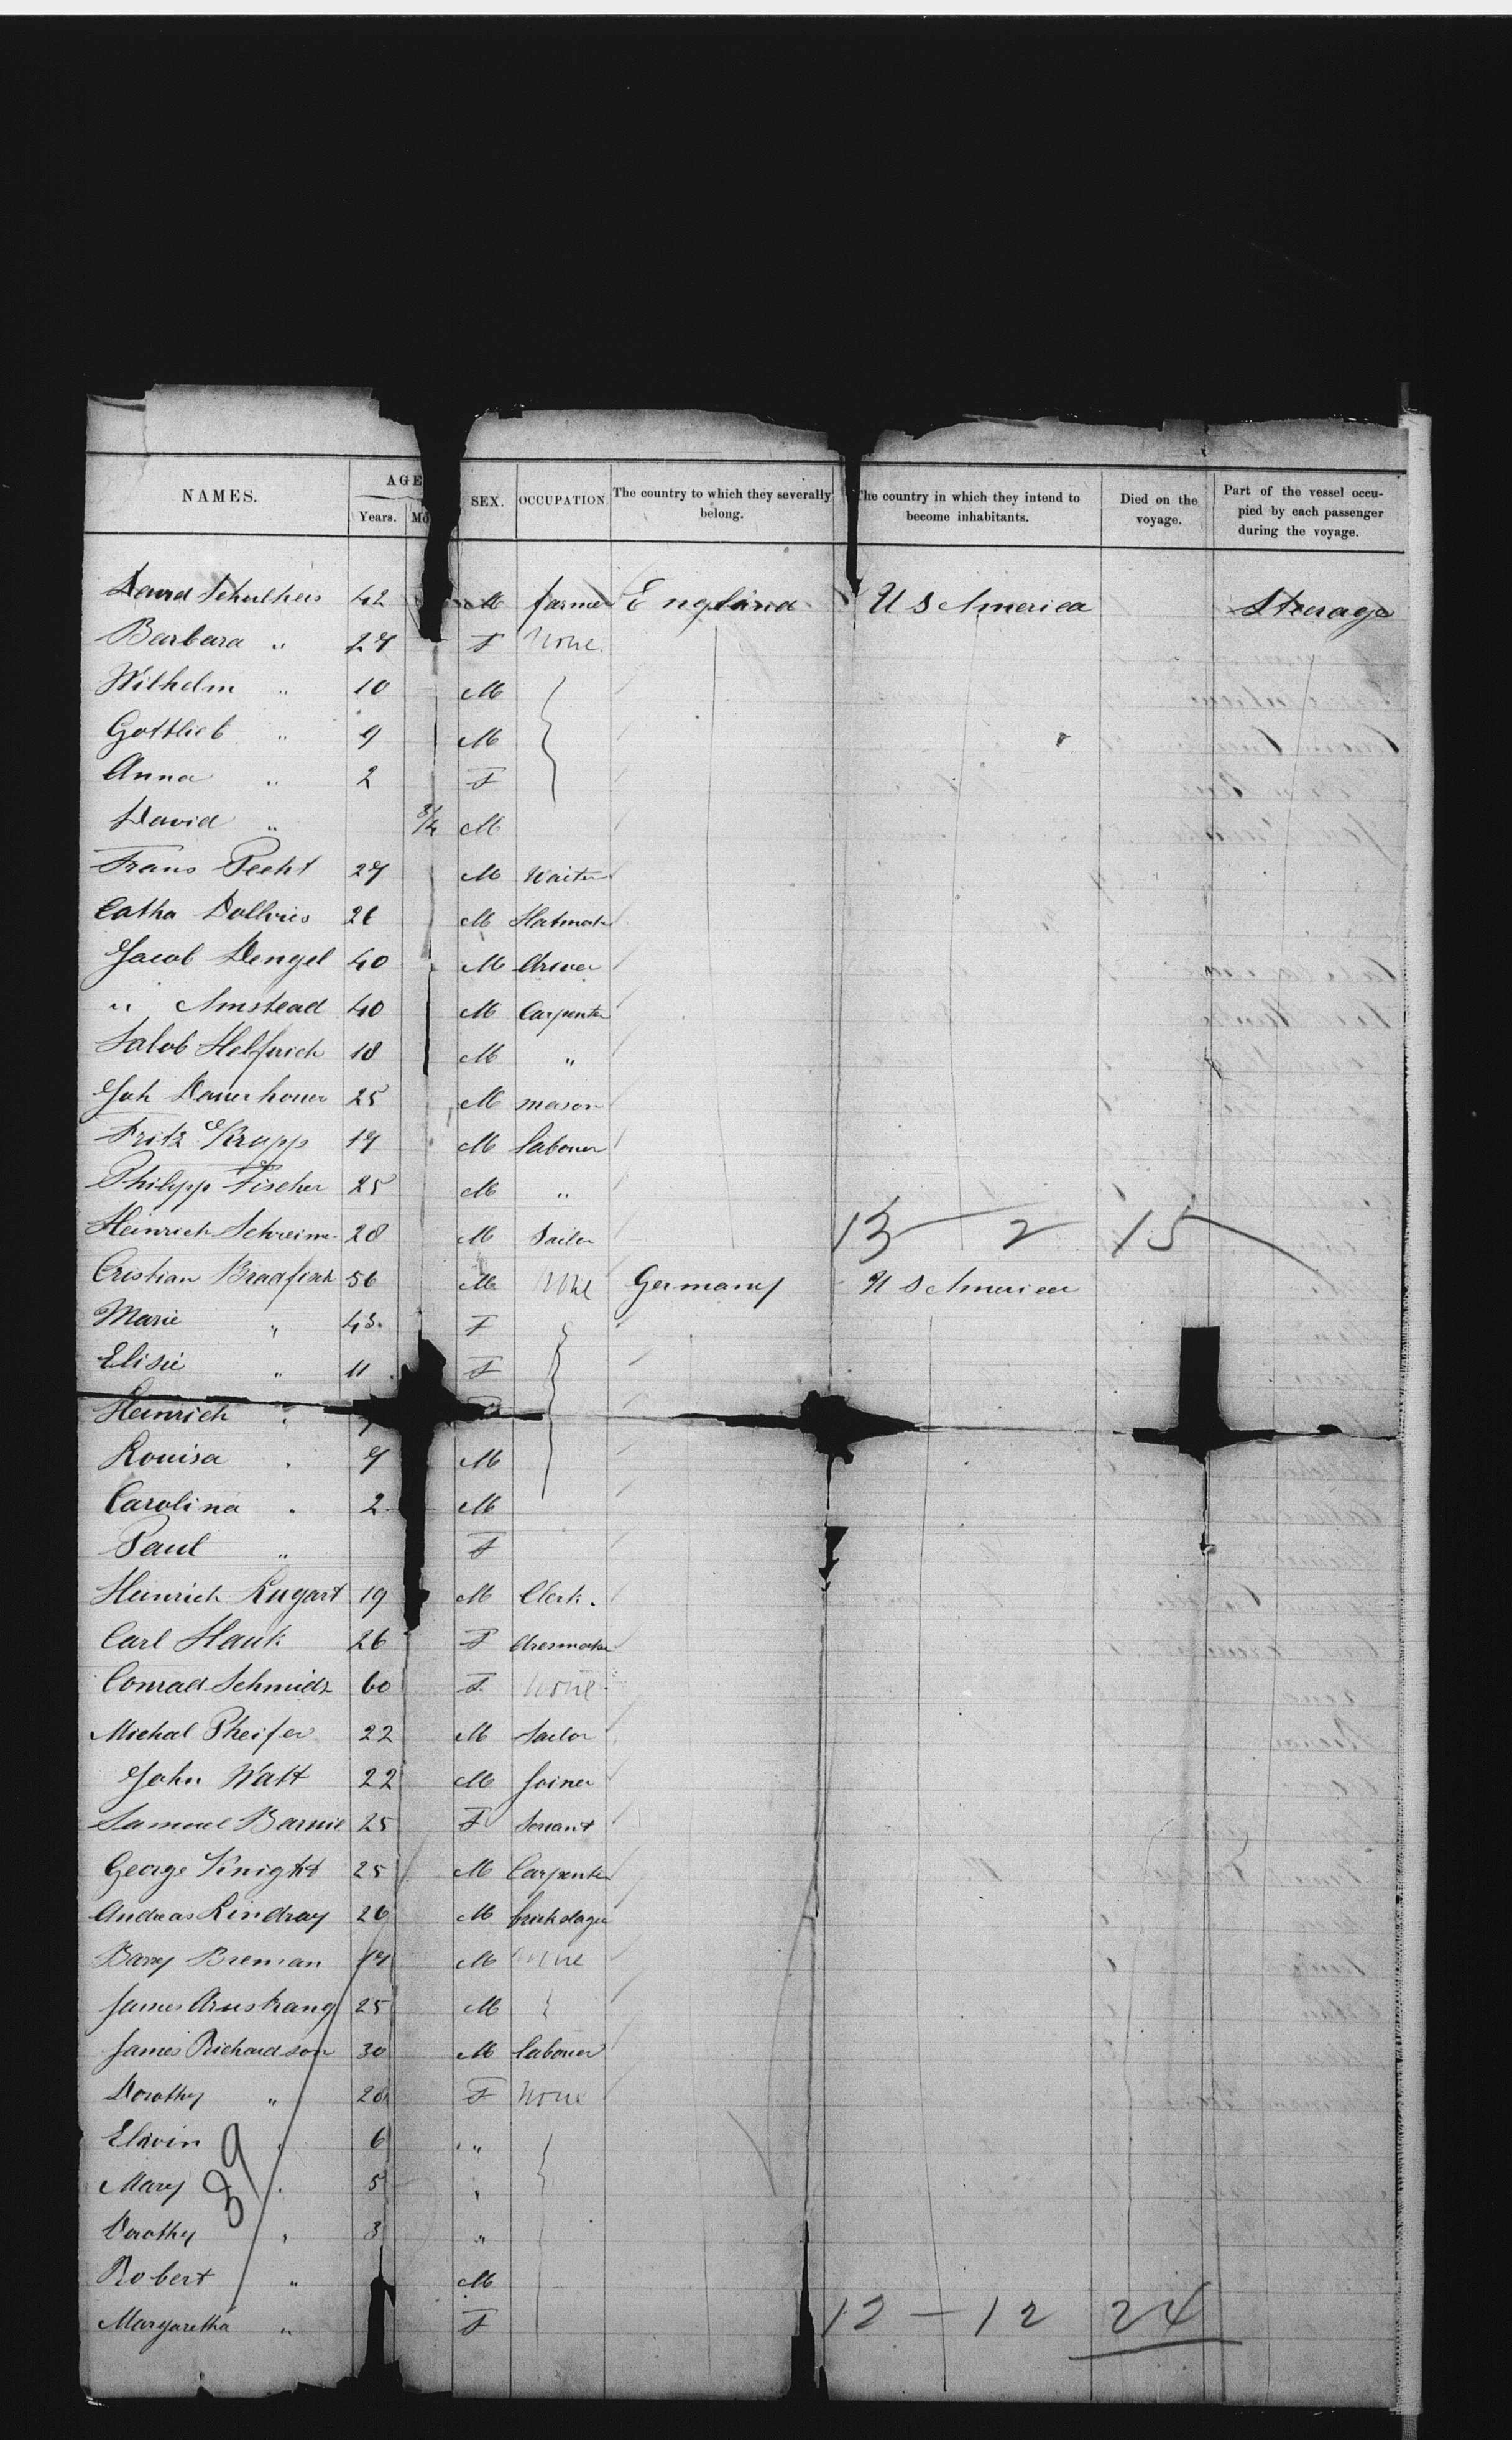 NAMES. AGE SEX. OCCUPATION. The country to which they severally belong. The country in which they intend to become inhabitants. Died on the voyage. Part of the vessel occupied by each passenger during the voyage.
Years. Mo
David Schulheis 42 M farmer England U S America Steerage
Barbara " 27 F None
Wilhelm " 10 M
Gottlieb " 9 M
Anna " 2 F
David " 3/4 M
Frans Pecht 27 M Waiter
Catha 26 M Hatmak
Jacob Dengel 40 M driver
" Amstead 40 M Carpenter
Jalob Helfrich 18 M "
Joh Dauerhouer 25 M mason
Fritz Krupp 17 M labouer
Philipp Fischer 25 M "
Heinrich Schreime 28 M Sailor 13 - 2 15
Cristian Bradfisch 56 M None Germany U S America
Marie " 43 F
Elisie " 11 F
Heinrich "
Louisa " 7 M
Carolina " 2 M
Paul " F
Heinrich Lugart 19 M Clerk.
Carl Hauk 26 F dresmaker
Conrad Schmidz 60 F None
Michal Pheifer 22 M Sailor
John Watt 22 M Joiner
Samuel Barnie 25 F Servant
George Knight 25 M Carpenter
Andreas Lindray 26 M
Barry Breman 17 M None
James Armstrang 25 M
James Richardson 30 M labouer
Dorothy " 26 F None
Edwin " 6 "
Mary " 5 "
39
Dorothy " 3 "
Robert " M
Margaretha " F 12 - 12 24